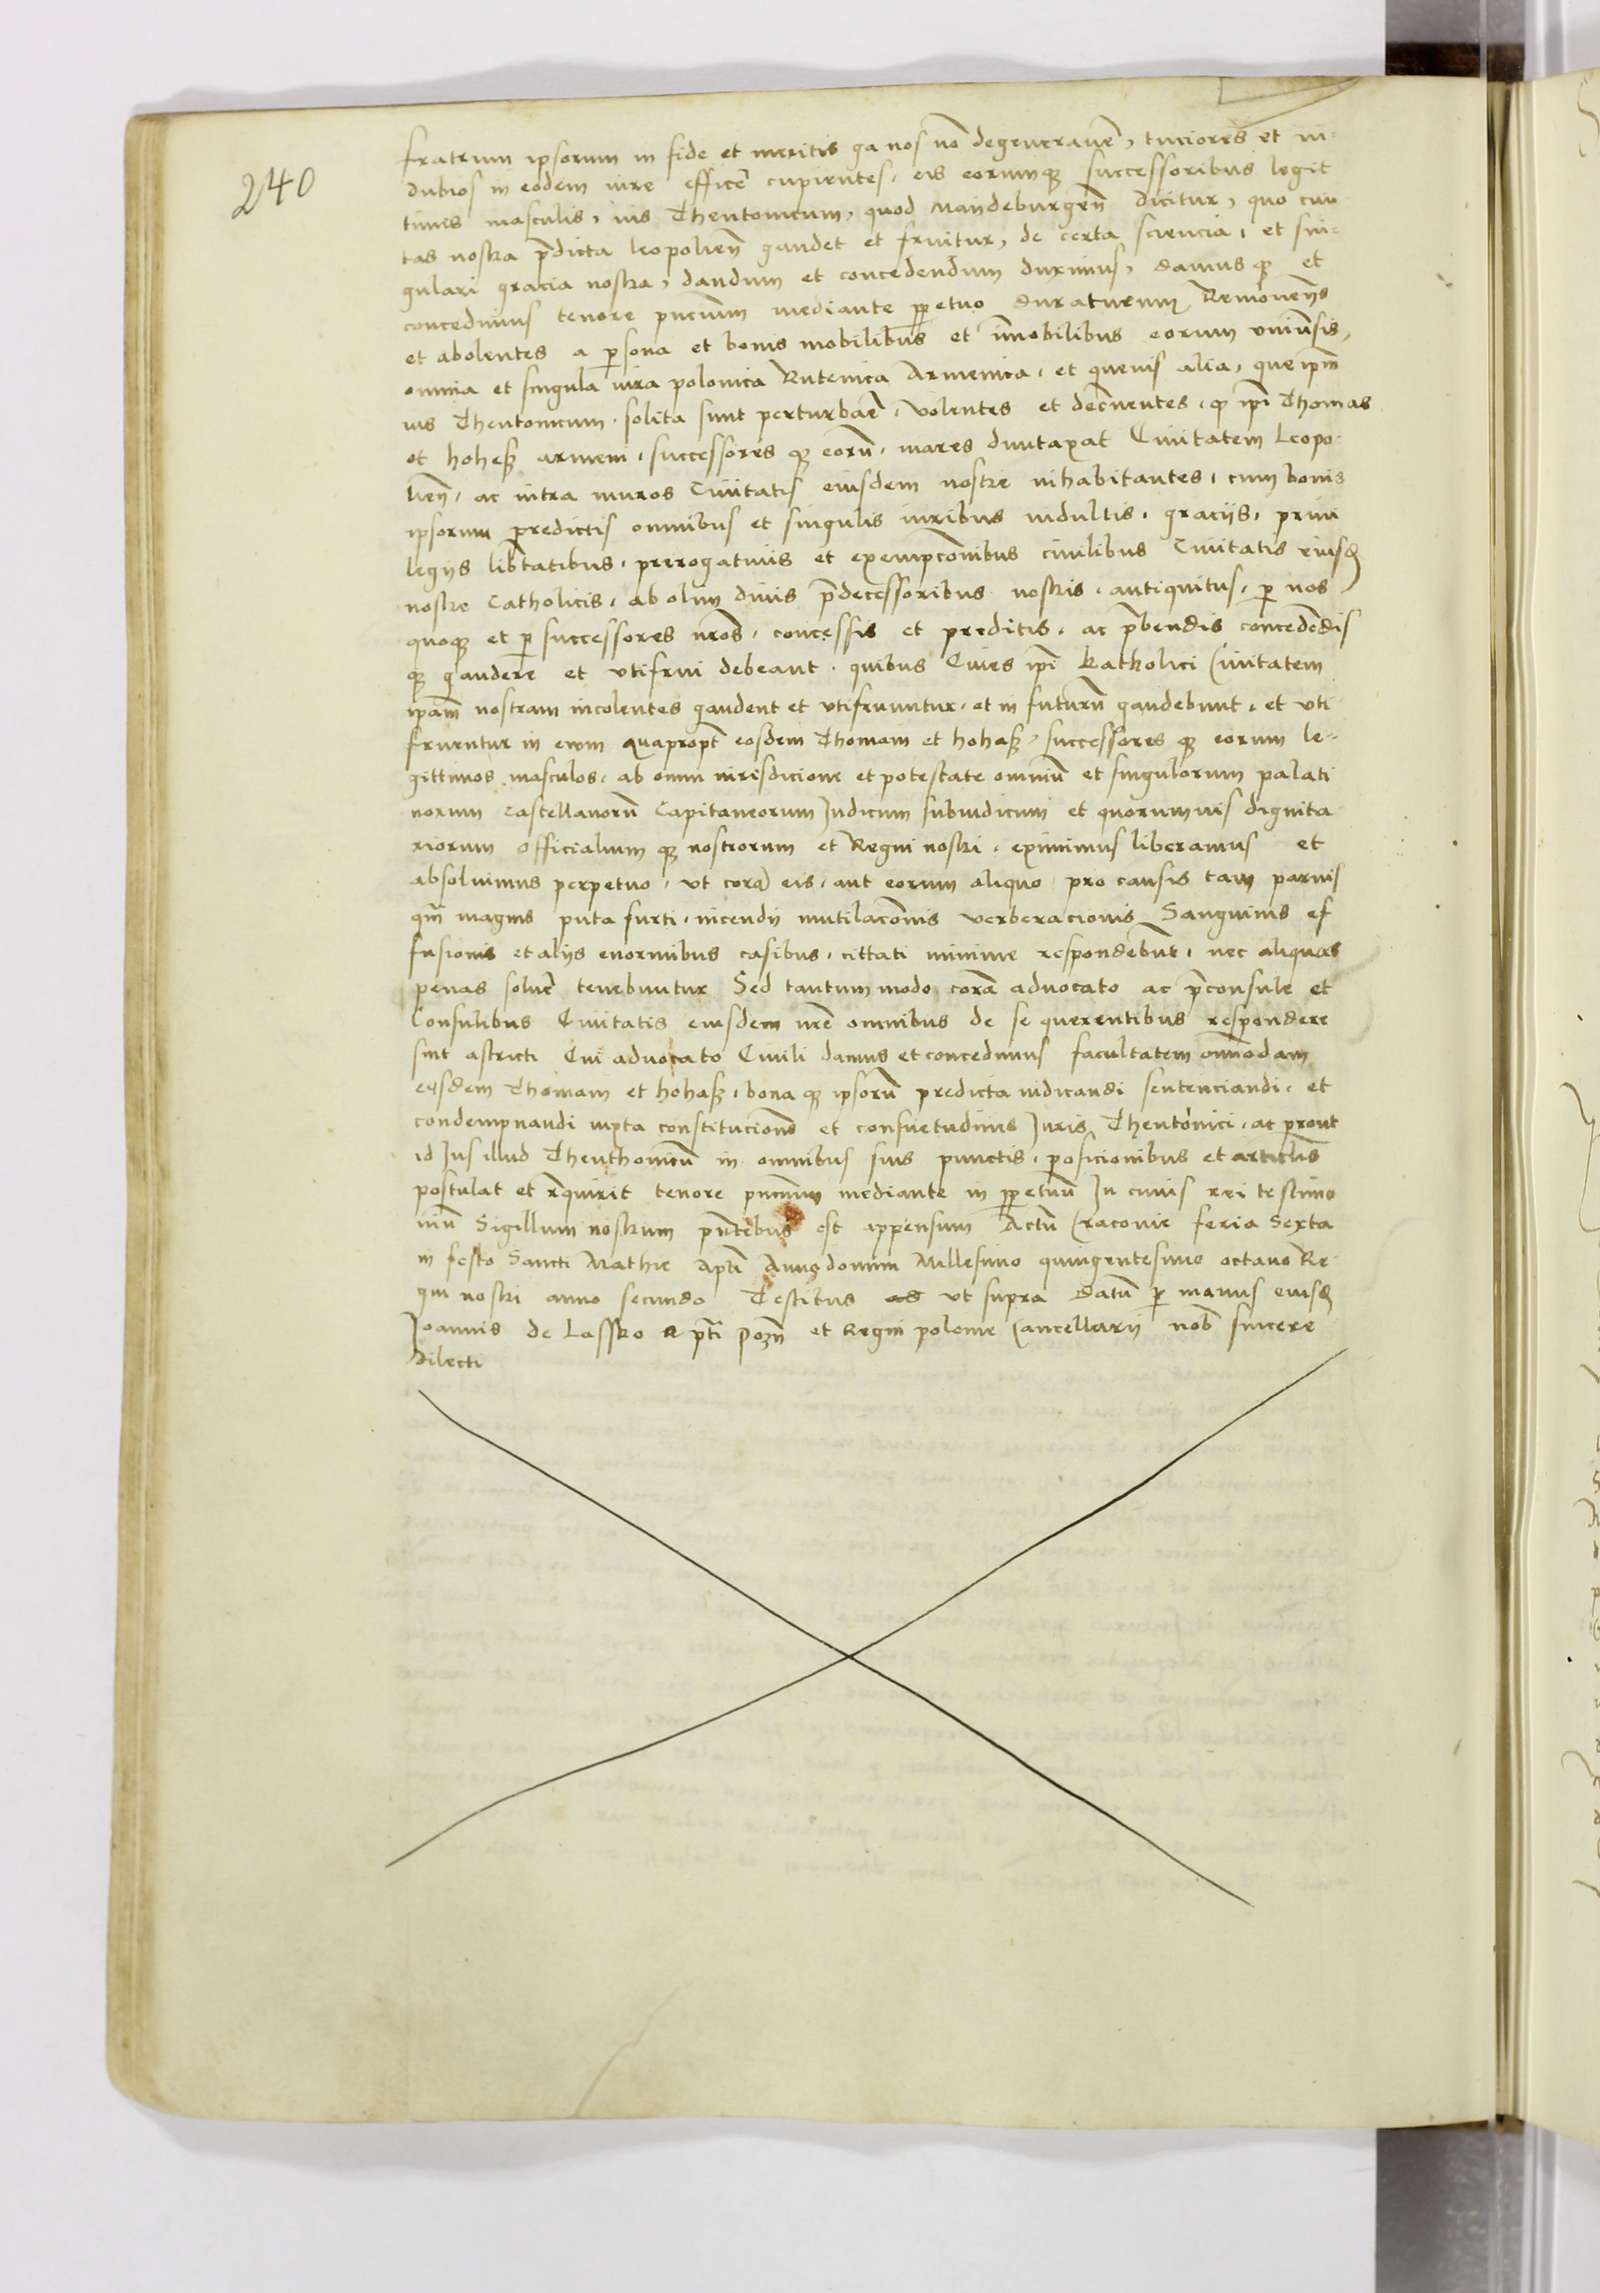 240
fratrum ipsorum in fide et meritis ga nos nõ degeneraueř, tuciores et in-
dubios in eodem iure efficeř cupientes, eis eorumqꝫ successoribus legit
timis masculis, ius Theutonicum, quod Maydeburgeñ dicitur, quo ciui
tas nostra p̃dicta leopolieñ gaudet et fruitur, de certa sciencia, et sin-
gulari gracia nostra, dandum et concedendum duximus, damusqꝫ et
concedimus tenore pñcium mediante ꝑpetuo duraturum Remouentes
et abolentes a ꝑsona et bonis mobilibus et im̃obilibus eorum vniuersis,
omnia et singula iura polonica Rutenica Armenica, et queuis alia, que ip̃m
ius Theutonicum, solita sunt perturbař, volentes et decernentes, qꝫ ip̃i Thomas
et hohesꝫ armeni, successoresqꝫ eorũ, mares duntaxat Ciuitatem Leopo-
lieñ, ac intra muros Ciuitatis eiusdem nostre inhabitantes, cum bonis
ipsorum predictis omnibus et singulis iuribus indultis, graciis, priui
legijs lib̃tatibus, prerogatiuis et exempcõnibus ciuilibus Ciuitatis eiusd
nostre Catholicis, ab olim diuis p̃decessoribus nostris, antiquitus, ꝑ nos
quoqꝫ et ꝑ successores nr̃os, concessis et preditis, ac p̃bendis concedẽdis
qꝫ gaudere et vtifrui debeant, quibus Ciues ip̃i katholici Ciuitatem
ip̃am nostram incolentes gaudent et vtifruuntur, et in futurũ gaudebunt, et vti
fruentur in euum Quaproptꝰ eosdem Thomam et hohasꝫ, successoresqꝫ eorum le-
gittimos masculos, ab omni iurisdicione et potestate omniũ et singulorum palati
norum Castellanorũ Capitaneorum Judicum subiudicum et quorumuis dignita
riorum officialiumqꝫ nostrorum et Regni nostri, eximimus liberamus et
absoluimus perpetuo, vt corã eis, aut eorum aliquo pro causis tam paruis
qm̃ magnis puta furti, incendij mutilacõnis verberacionis Sanguinis ef
fusionis et alijs enormibus casibus, cittati minime respondebũt, nec aliquas
penas solueř tenebuntur Sed tantummodo corã aduocato ac p̃consule et
Consulibus Ciuitatis eiusdem nr̃e omnibus de se querentibus respondere
sint astricti Cui aduocato Ciuili damus et concedimus facultatem omnĩodam
eosdem Thomam et hohasꝫ, bonaqꝫ ipsorũ predicta iudicandi sentenciandi, et
condempnandi iuxta constitucionẽ et consuetudinis Juris Theutonici, ac prout
id Jus illud Theuthonicũ in omnibus suis punctis, posicionibus et articlis
postulat et req̃uirit tenore pñcium mediante in ꝑpetuũ In cuius rei testimo
niũ Sigillum nostrum pñtibus est appensum Actũ Cracouie feria Sexta
in festo Sancti Mathie Apl̃i Anno domini Millesimo quingentesimo octauo Re-
gni nostri anno secundo Testibus vt supra Datũ ꝑ manus eiusd
Joannis de Lassko p̃ti Pozñ et Regni polonie Cancellarij nob̃ sincere
dilecti